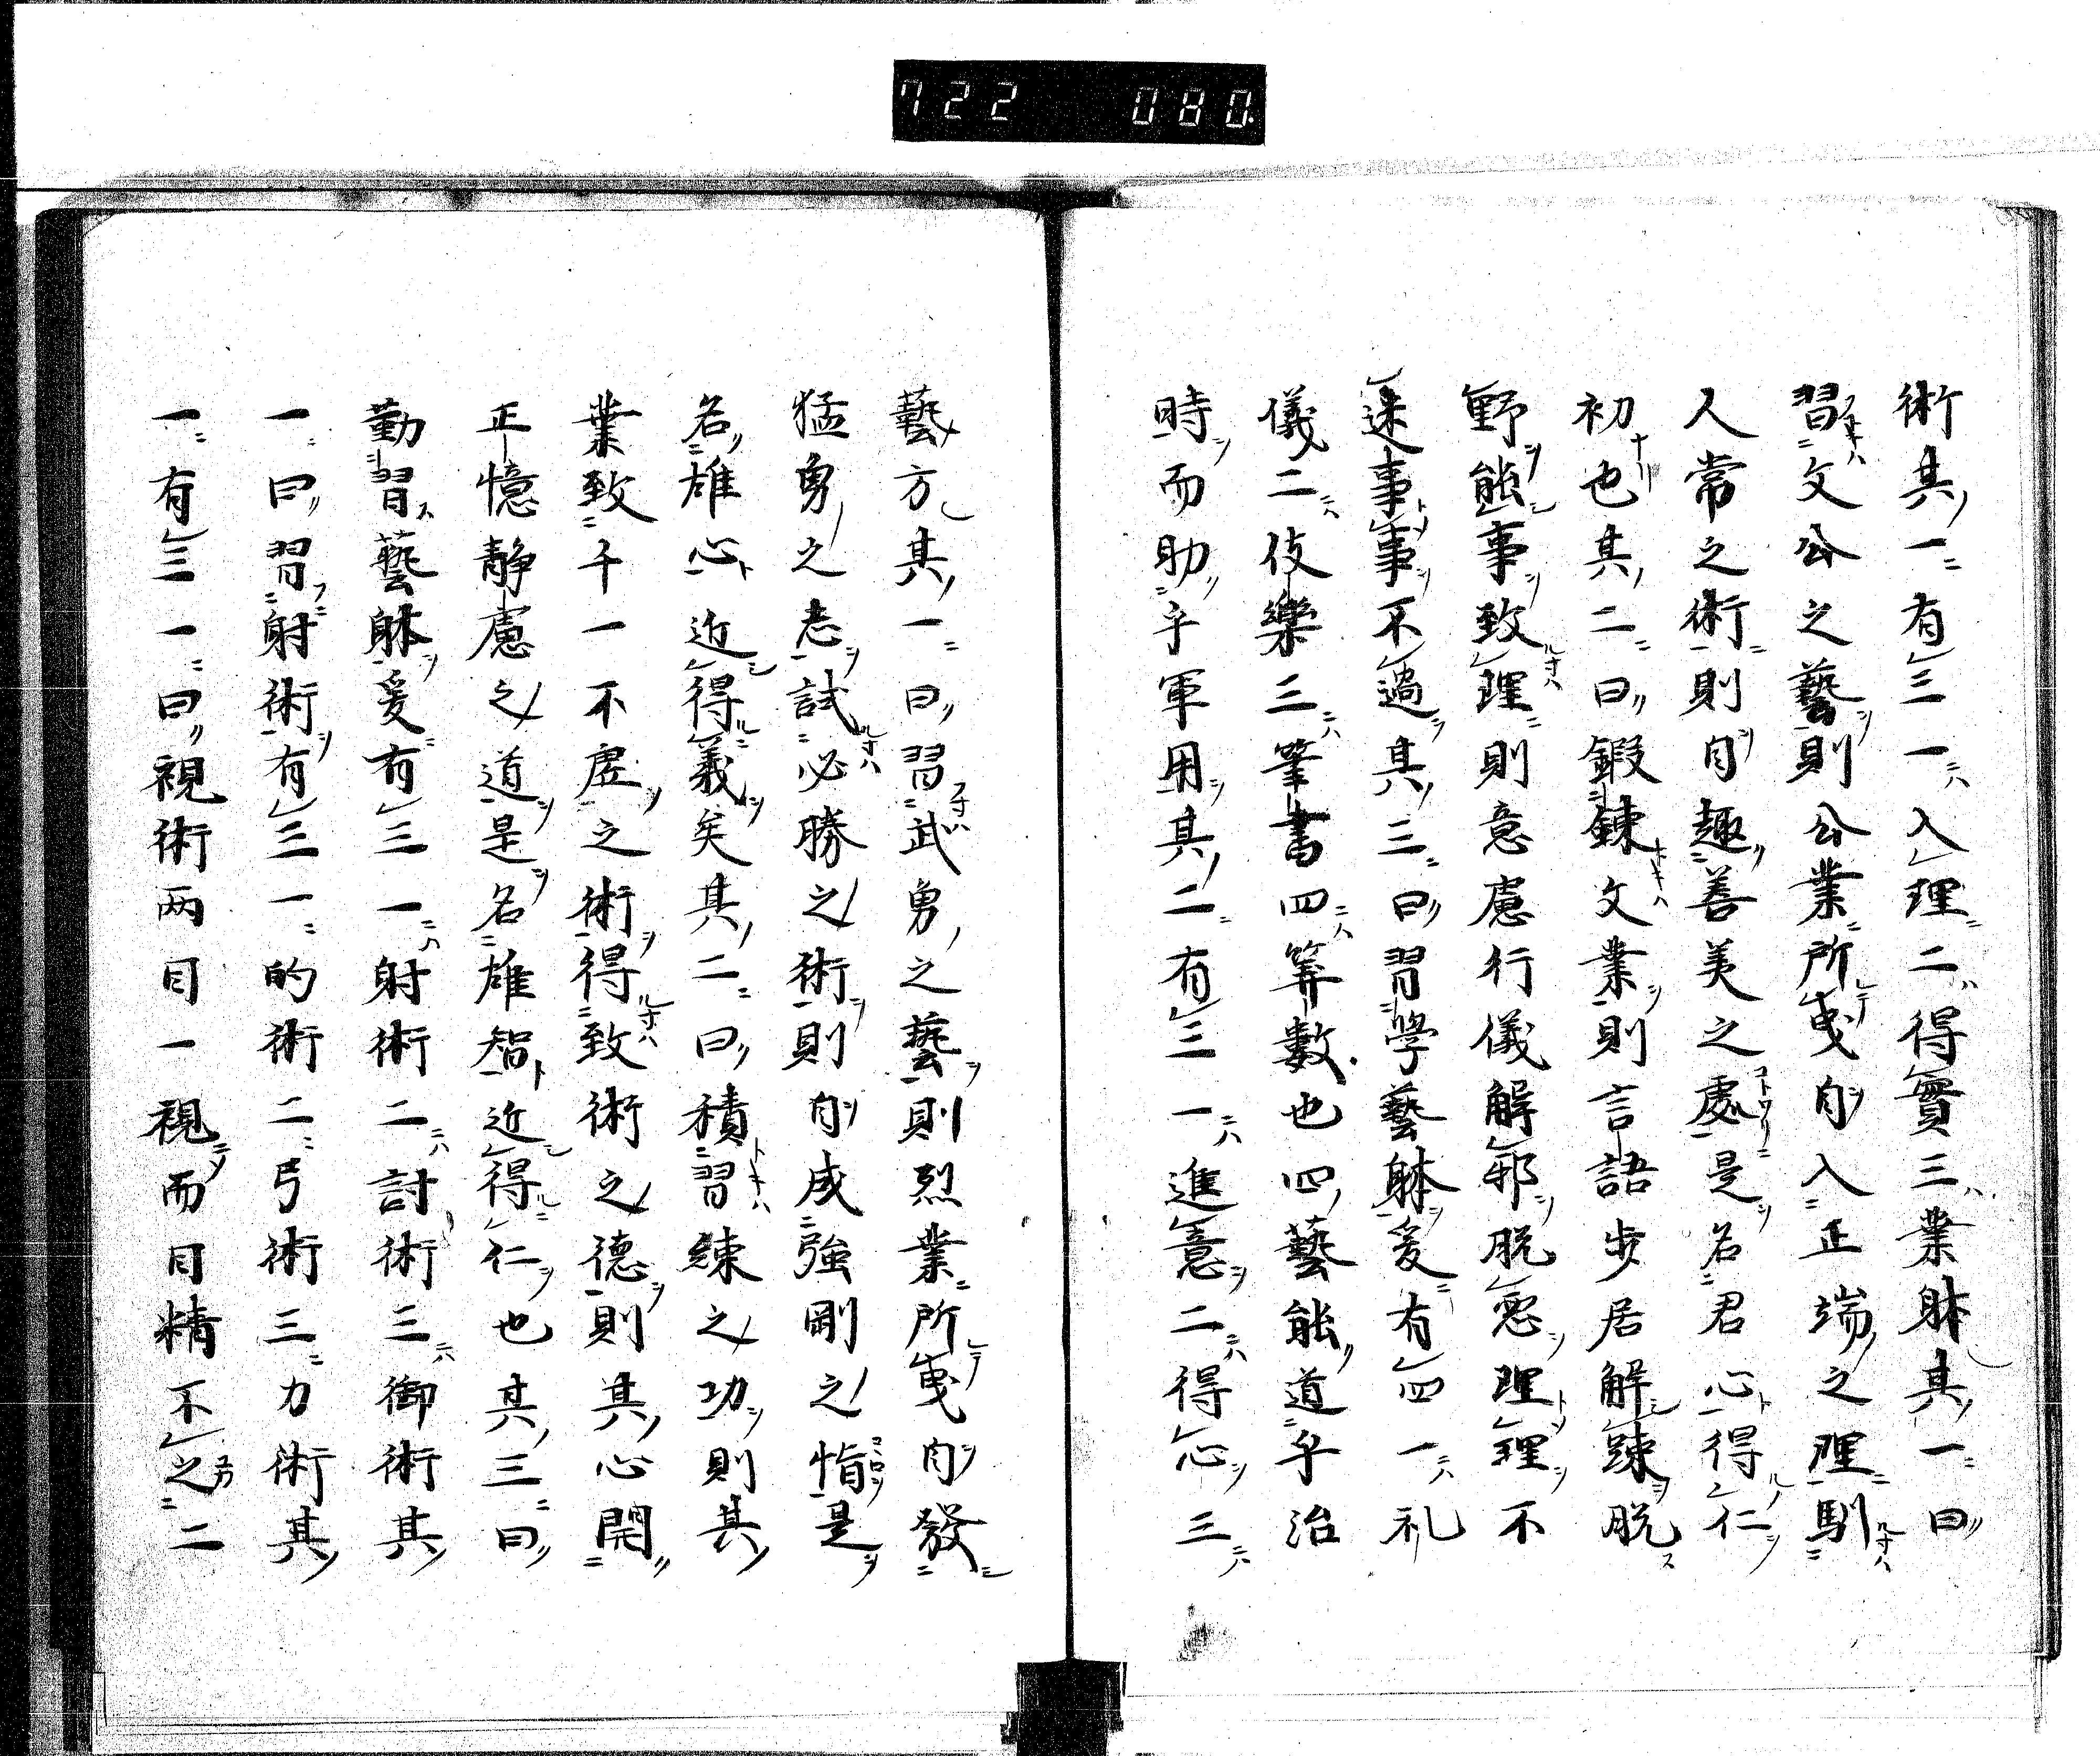 722 080
術其一有三一入理二得實三業躰其一曰
習文公之藝則公業所曳自入正端之理馴
人常之術則自趣善美之處是名君心得仁
初也其二曰鍛錬文業則言語歩居解踈脱
野能事致理則意慮行儀解邪脱惡理理不
迷事事不過其三曰習學藝躰爰有四一礼
儀二伎樂三筆書四筭數也四藝能道乎治
時而助乎軍用其二有三一進意二得心三
藝方其一曰習武勇之藝則烈業所曳自發
猛勇之志試必勝之術則自成強剛之情是
名雄心近得義矣其二曰積習練之功則其
業致千一不虚之術得致術之德則其心開
正憶静慮之道是名雄智近得仁也其三曰
勤習藝躰爰有三一射術二討術三御術其
一曰習射術有三一的術二弓術三力術其
一有三一曰視術两目一視而目精不之二